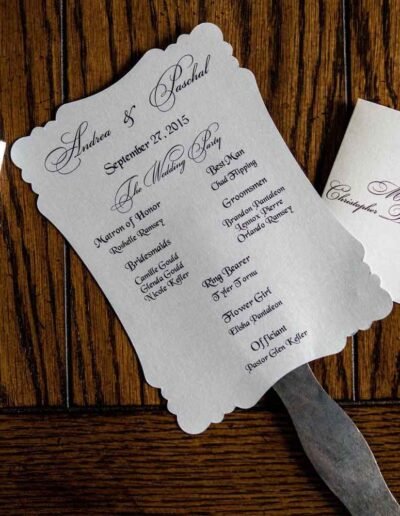 Andrea & Paschal
September 27, 2015
The Wedding Party
Matron of Honor
Roshelle Ramsey
Bridesmaids
Camille Gould
Glenda Gould
Nicole Keller
Best Man
Chad Flipping
Groomsmen
Brandon Pantaleon
Lennox Pierre
Orlando Ramsey
Ring Bearer
Tyler Tornu
Flower Girl
Elisha Pantaleon
Officiant
Pastor Glen Keller
Christopher